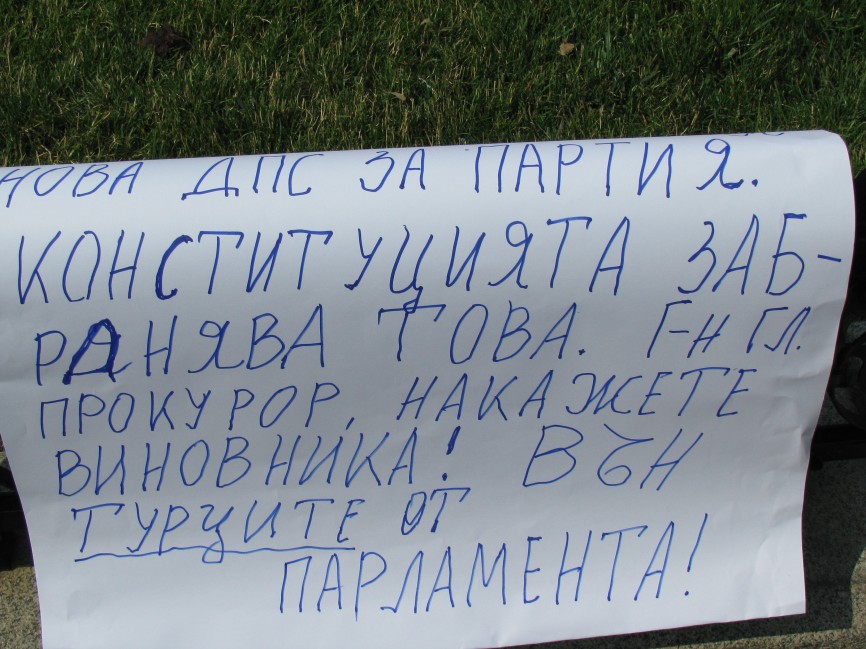 НОВА ДПС ЗА ПАРТИЯ.
КОНСТИТУЦИЯТА ЗАБ-
РАНЯВА ТОВА. Г-Н ГЛ.
ПРОКУРОР, НАКАЖЕТЕ
ВИНОВНИКА! ВЪН
ТУРЦИТЕ ОТ
ПАРЛАМЕНТА!